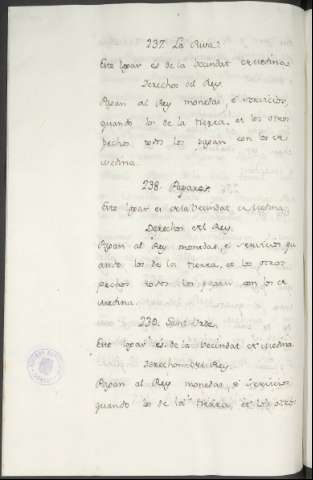 237. La Riva.
Este logar es de la Vecindat de Medina
Derechos del Rey
Pagan al Rey monedas, é servicios,
quando los de la tierra, et los otros
pechos todos los pagan con los de
Medina.
238.
Este logar es de la Vecindat de Medina
Derechos del Rey.
Pagan al Rey monedas, é servicios qu
ando los de la tierra, et los otros
pechos todos los pagan con los de
Medina.
239. Sant
Este logar es de la Vecindat de Medina
Derechos del Rey.
Pagan al Rey monedas, é servicios
quando los de la tierra, et los otros